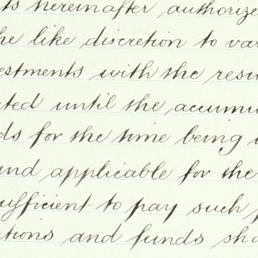 ts hereinafter authorize
he like discretion to var
estments with the resu
ted until the accumu
ds for the time being i
and applicable for the
ufficient to pay such p
tions and funds sha